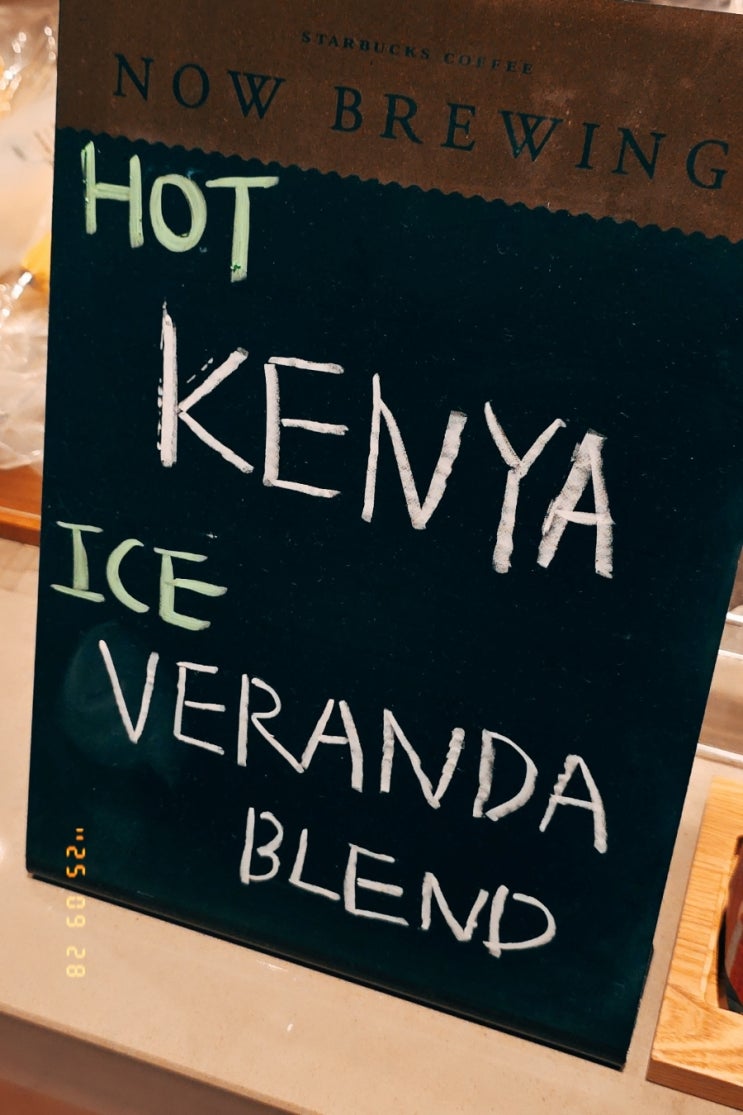 STARBUCKS COFFEE
NOW BREWING
HOT
KENYA
ICE
VERANDA
BLEND
"25 09 28